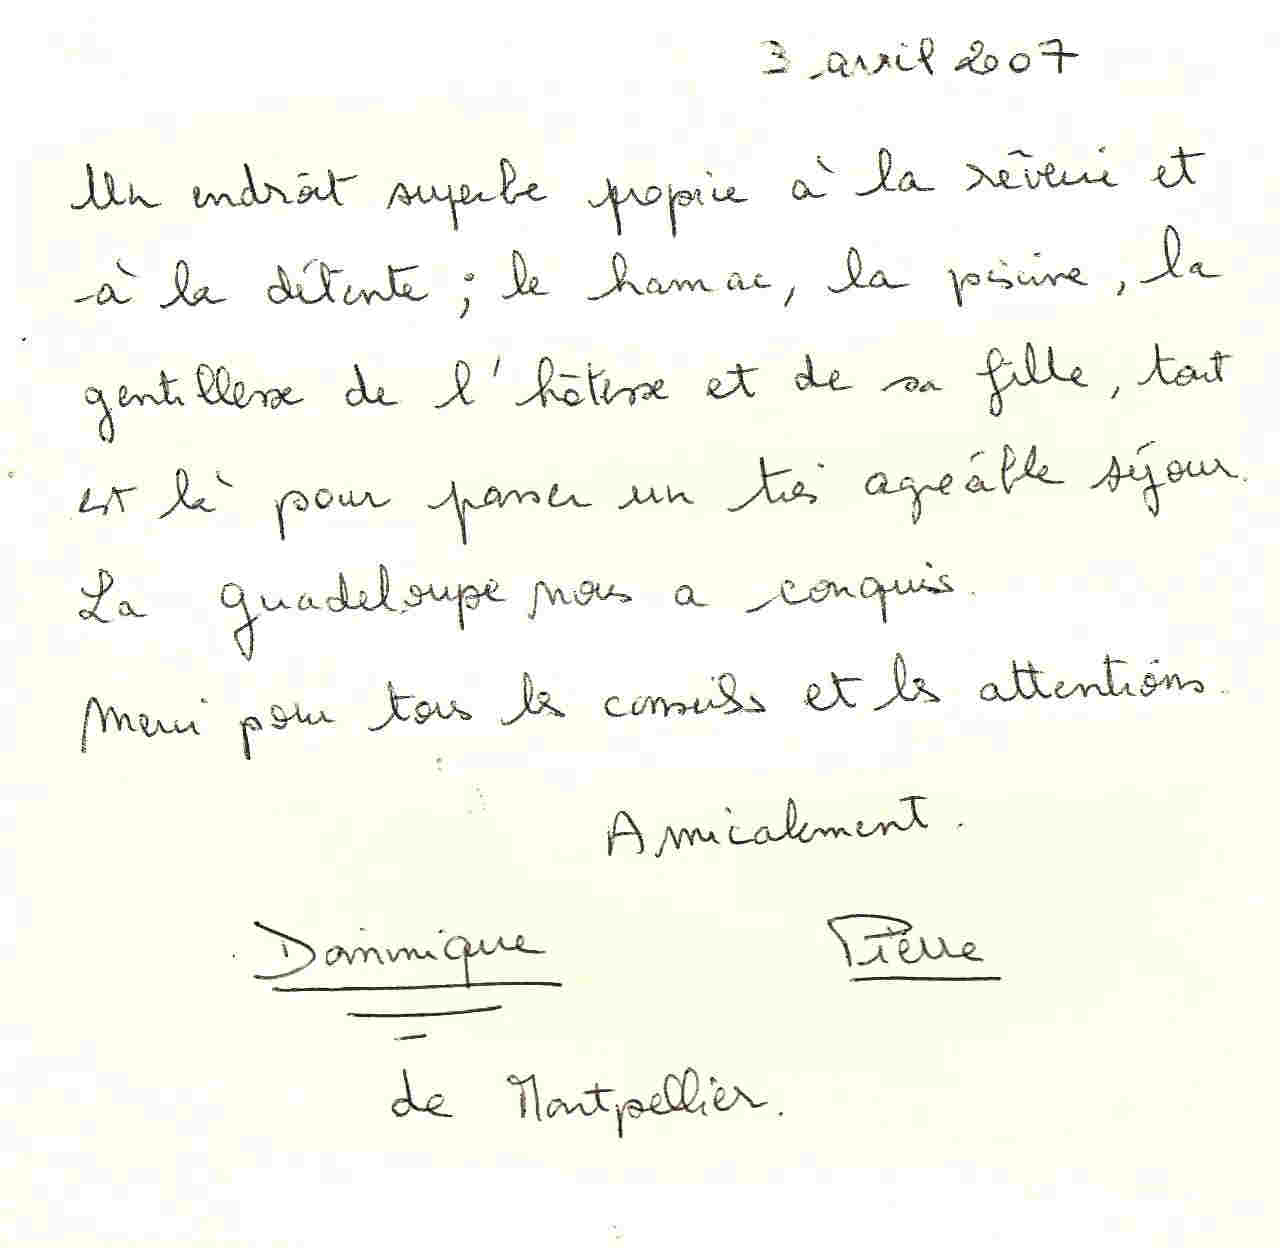 3 avril 2007
Un endroit superbe propice à la rêverie et
à la détente ; le hamac, la piscine, la
gentillesse de l'hôtesse et de sa fille, tout
est là pour passer un très agréable séjour.
La Guadeloupe nous a conquis.
Merci pour tous les conseils et les attentions.
Amicalement.
Dominique Pierre
de Montpellier.